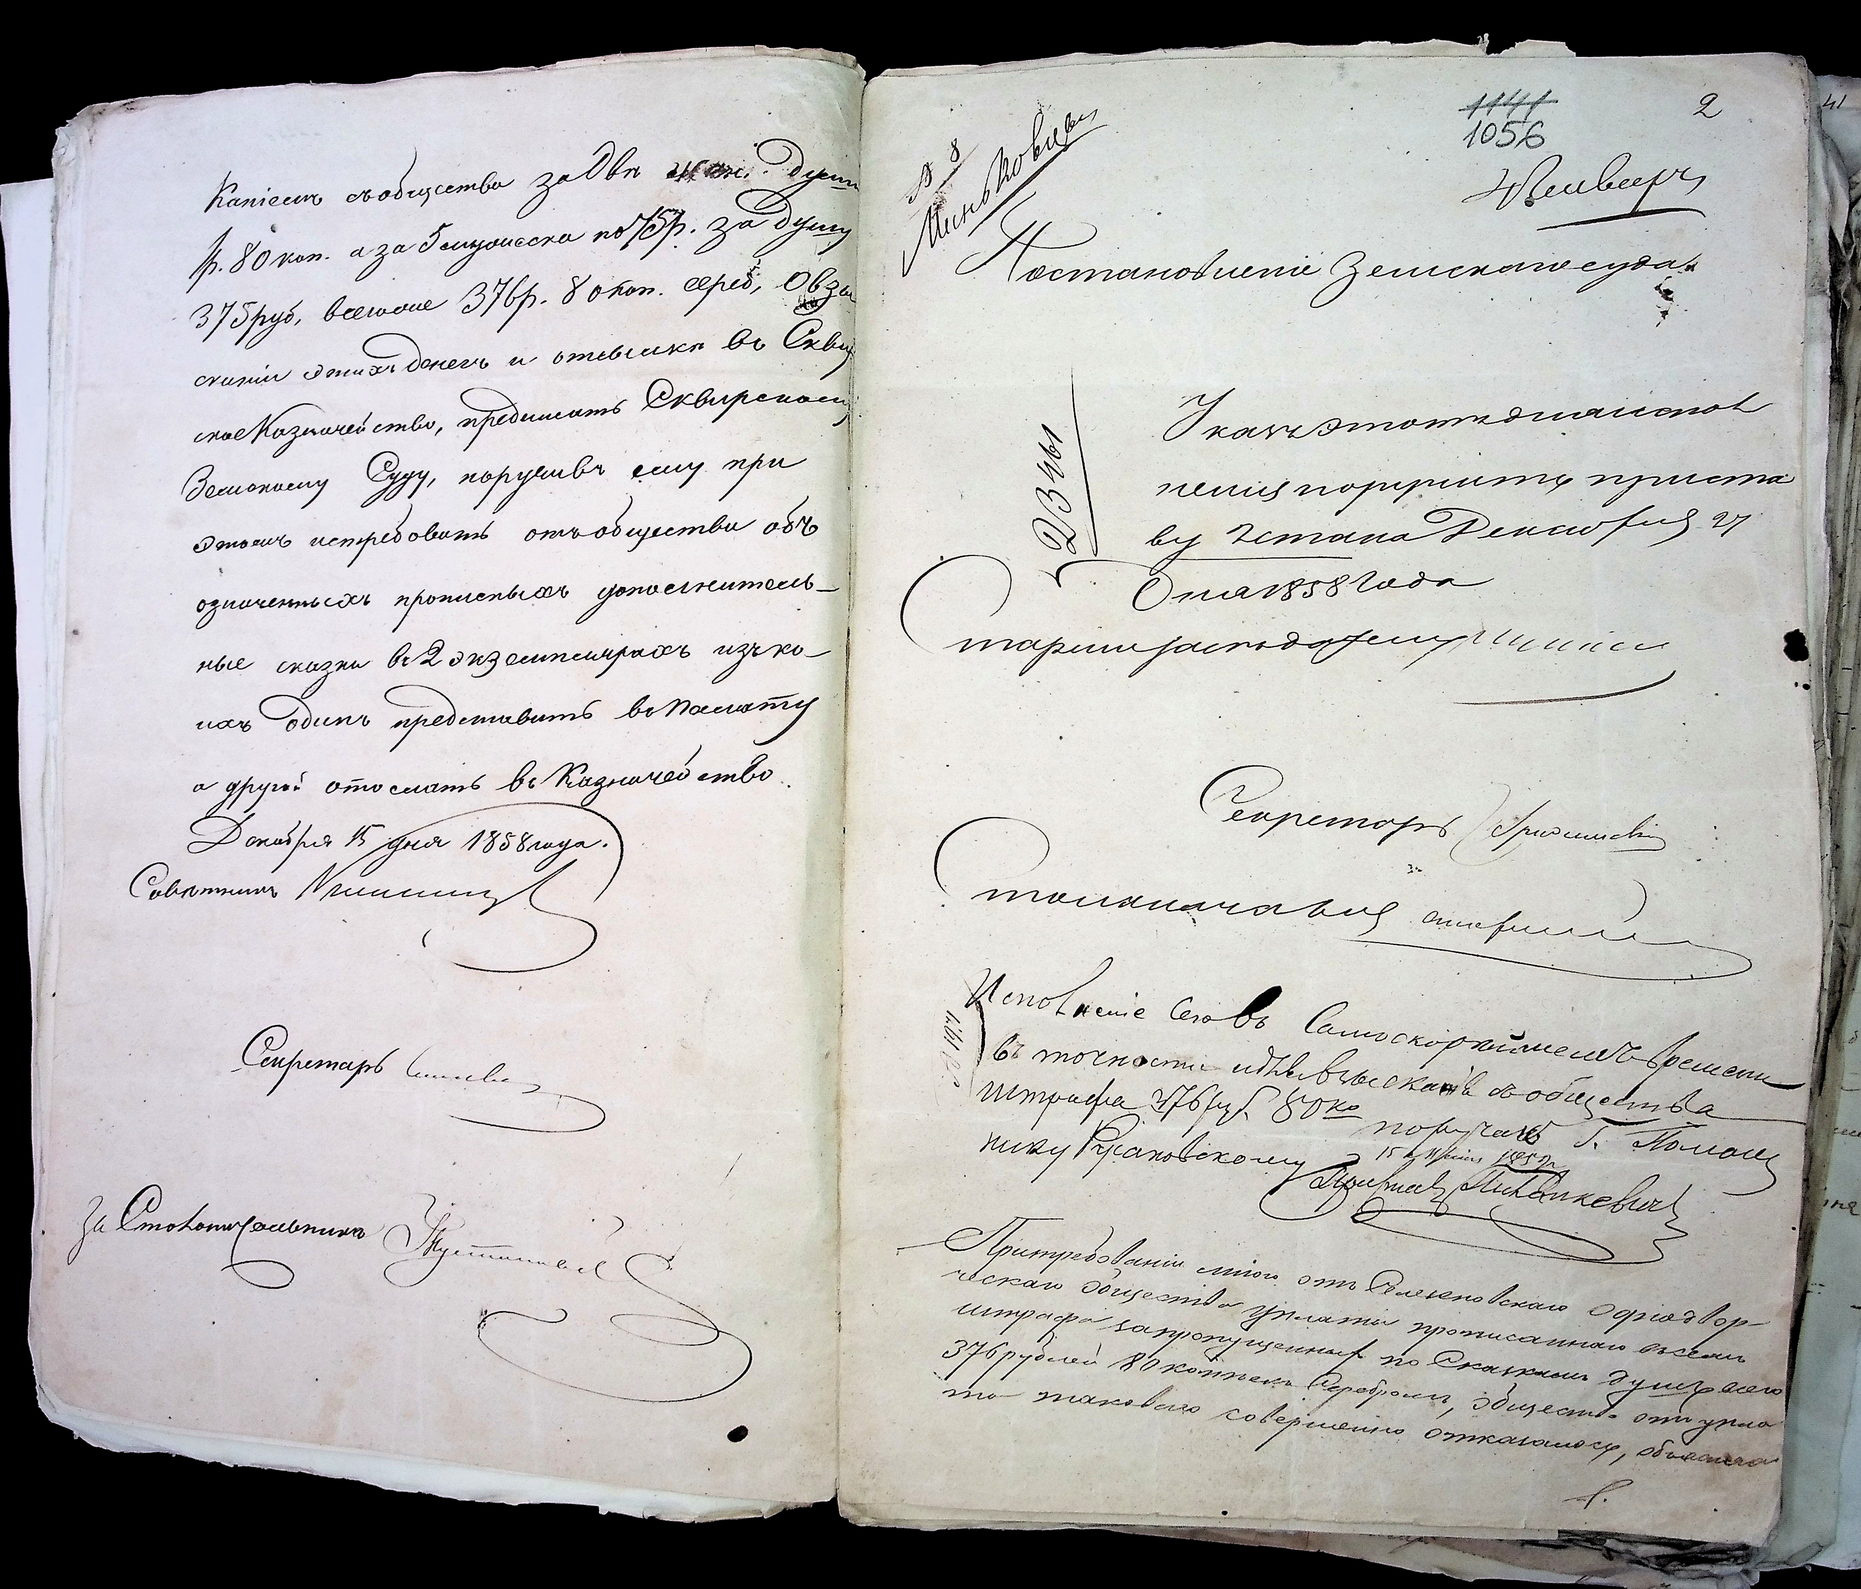 каніемъ съ общества за двѣ жен. души
р. 80 коп. а за 5 мужеска по 75 р. за душу
375 руб, всего же 376 р. 80 коп. сереб, о взы
сканіи этихъ денегъ и отсылкѣ въ Сквир
ское Казначейство, предписать Сквирскому
Земскому Суду, поручивъ ему при
этомъ истребовать отъ общества объ
означенныхъ прописныхъ дополнитель-
ные сказки въ 2 экземплярахъ изъ ко-
ихъ одинъ представить въ Палату
а другой отослать въ Казначейство.
Декабря 15 дня 1858 года.
Совѣтникъ
Секретарь
За Столоначальника
2
1141
1056
№ 8
Миньковцы
Постановленіе Земскаго суда
Указъ этотъ для исполненія
поручить приста
ву 2 стана Декабря 27
дня 1858 года
Секретарь
Столоначальникъ
Исполненіе сего въ самоскорѣйшемъ времени
въ точности и взысканіе съ общества
штрафа 376 руб. 80 ко
поручаю Г. Помощ
нику Русановскому
Приставъ
При требованіи мною отъ однодвор-
ческаго общества уплаты прописаннаго въ семъ
штрафа за пропущенныхъ по сказкамъ душъ всего
376 рублей 80 копѣекъ серебромъ, общество отъ упла
ты таковаго совершенно отказалось, объясняя